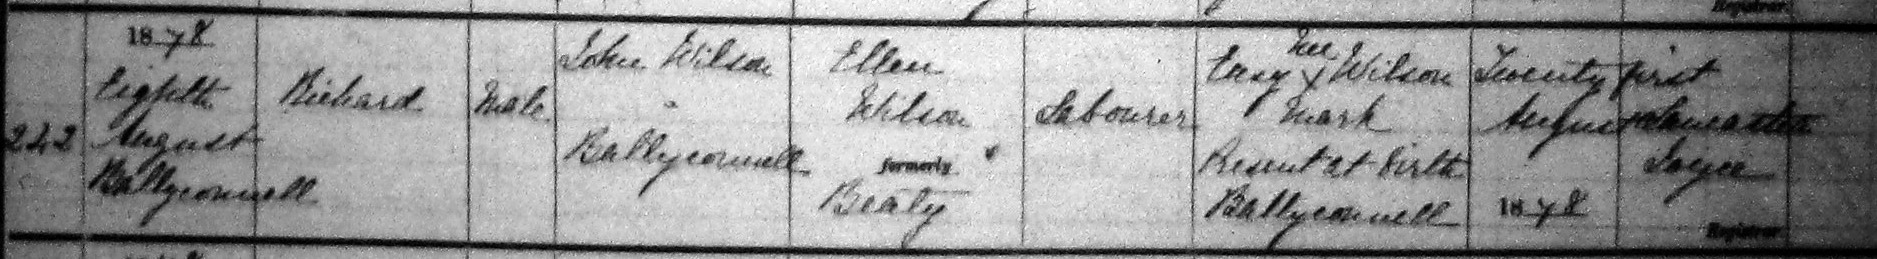 Registrar.
242
1878
Eighth
August
Ballyconnell
Richard
Male
John Wilson
Ballyconnell
Ellen
Wilson
formerly
Beaty
Labourer
Her
X Wilson
Mark
Present at birth
Ballyconnell
Twenty first
August
1878
Joyce
Registrar.